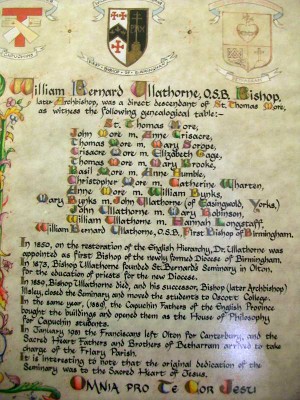 William Bernard Ullathorne, O.S.B. Bishop,
later Archbishop, was a direct descendant of St. Thomas More,
as witness the following genealogical table:-
St. Thomas More,
John More m. Anne Crisacre,
Thomas More m. Mary Scrope,
Crisacre More m. Elizabeth Gage,
Thomas More m. Mary Brooke,
Basil More m. Anne Humble,
Christopher More m. Catherine Wharten,
Anne More m. William Bunks,
Mary Bunks m. John Ullathorne (of Easingwold, Yorks.)
John Ullathorne m. Mary Robinson,
William Ullathorne m. Hannah Longstaff,
William Bernard Ullathorne, O.S.B., First Bishop of Birmingham.
In 1850, on the restoration of the English Hierarchy, Dr. Ullathorne was
appointed as first Bishop of the newly formed Diocese of Birmingham.
In 1873, Bishop Ullathorne founded St. Bernard's Seminary in Olton,
for the education of priests for the new Diocese.
In 1889, Bishop Ullathorne died, and his successor, Bishop (later Archbishop)
Ilsley, closed the Seminary and moved the students to Oscott College.
In the same year, (1889), the Capuchin Fathers of the English Province
bought the buildings and opened them as the House of Philosophy
for Capuchin students.
In January, 1981 the Franciscans left Olton for Canterbury, and the
Sacred Heart Fathers and Brothers of Betharram arrived to take
charge of the Friary Parish.
It is interesting to note that the original dedication of the
Seminary was to the Sacred Heart of Jesus.
OMNIA PRO TE COR JESU